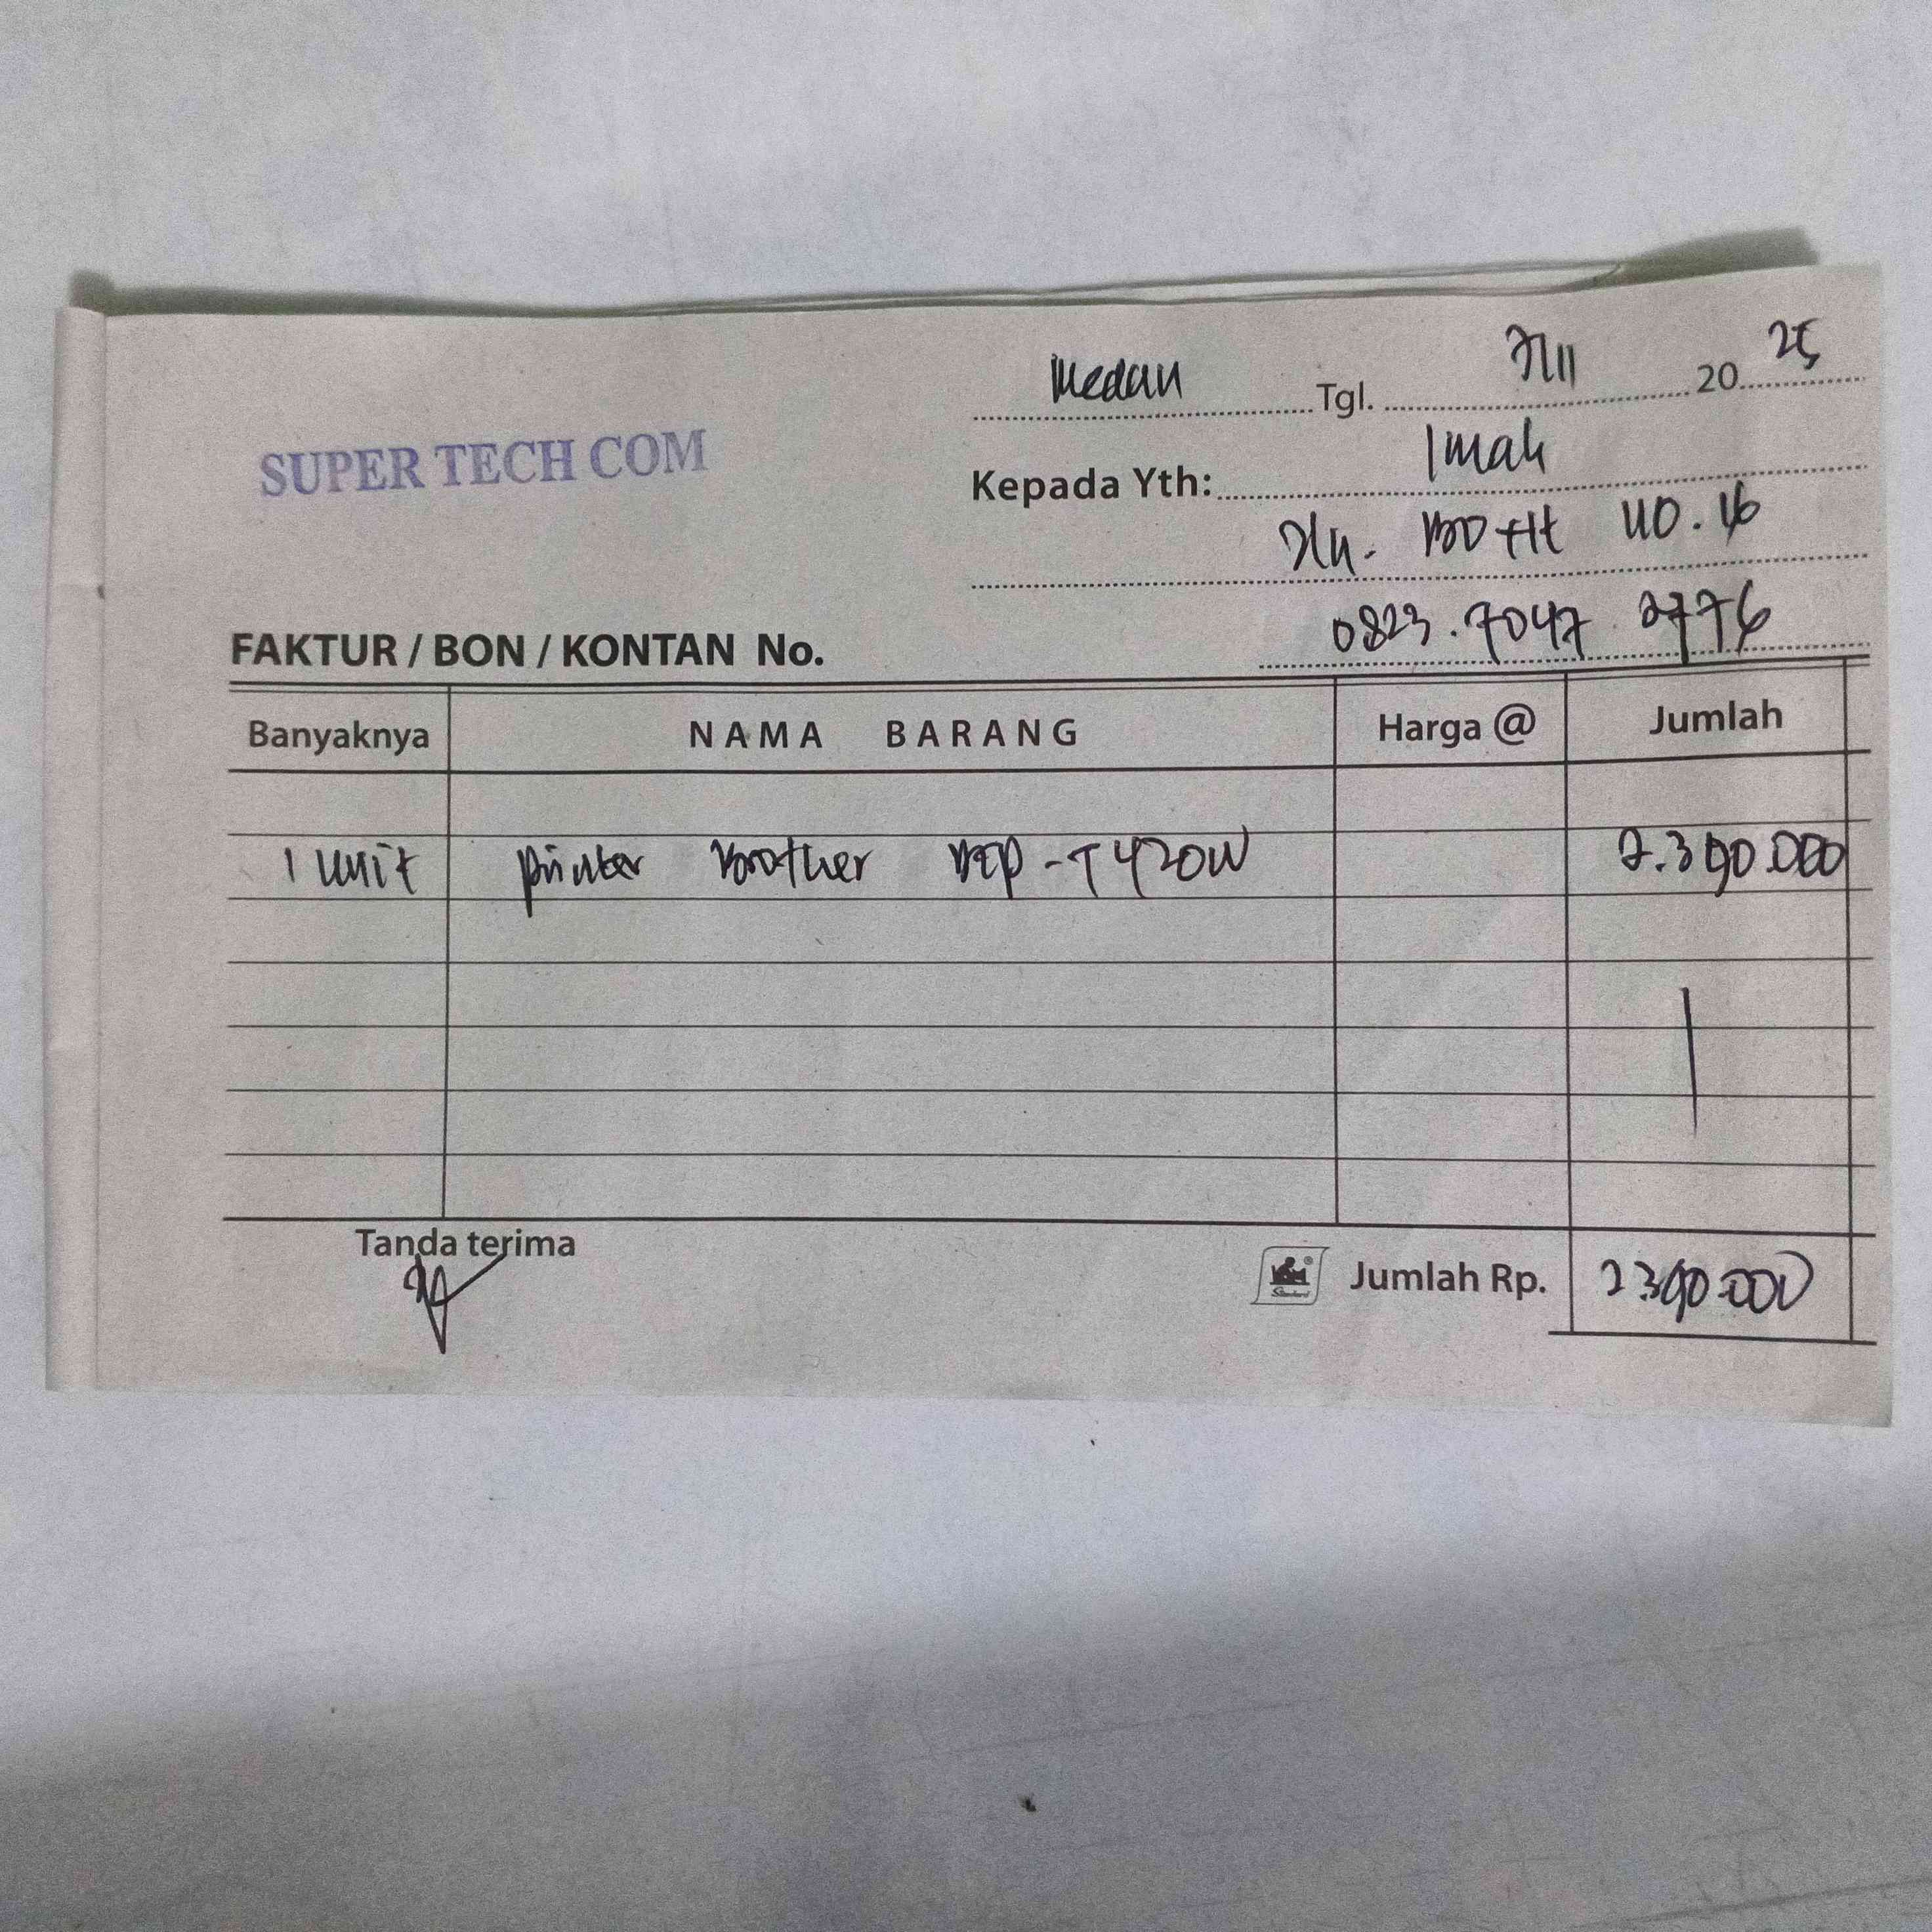 Medan Tgl. 7/11 2025
SUPER TECH COM
Kepada Yth: Imah
Jln. No. 16
0823.7047 2776
FAKTUR / BON / KONTAN No.
Banyaknya NAMA BARANG Harga @ Jumlah
1 unit printer Brother DCP-T420W 2.390.000
Tanda terima
Jumlah Rp. 2.390.000